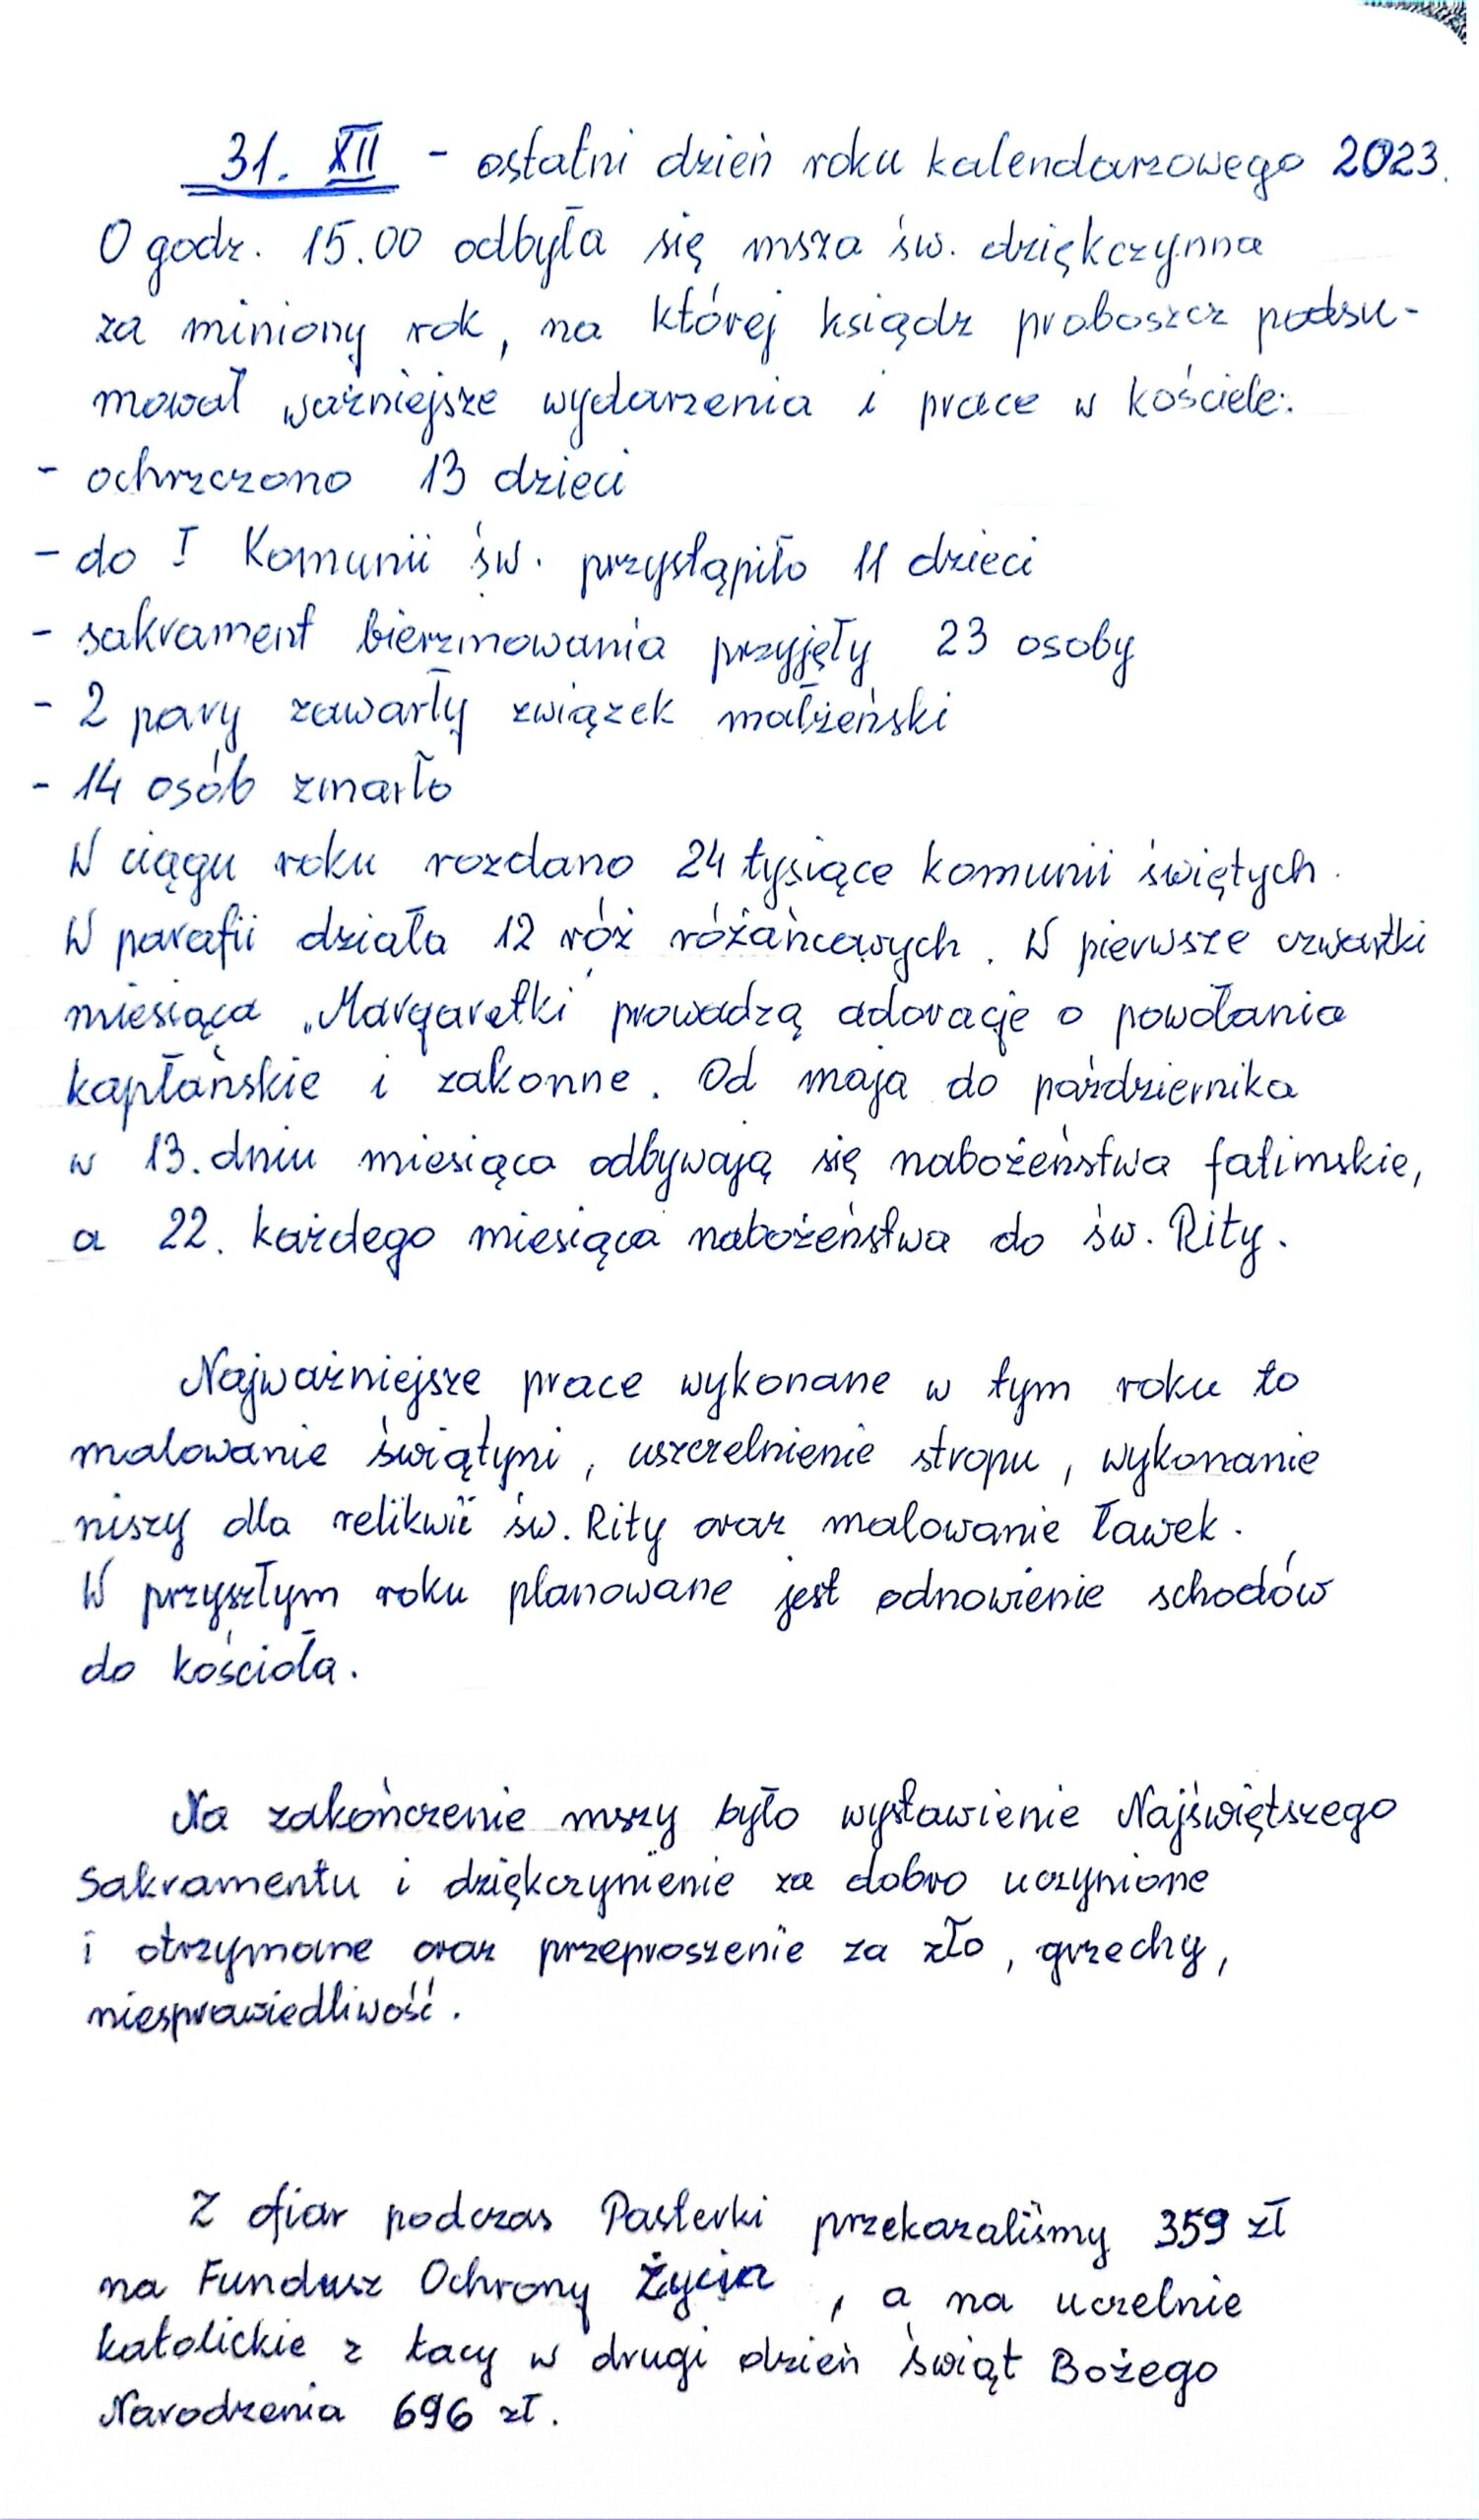 31. XII - ostatni dzień roku kalendarzowego 2023.
O godz. 15.00 odbyła się msza św. dziękczynna
za miniony rok, na której ksiądz proboszcz podsu-
mował ważniejsze wydarzenia i prace w kościele:
- ochrzczono 13 dzieci
- do I Komunii św. przystąpiło 11 dzieci
- sakrament bierzmowania przyjęły 23 osoby
- 2 pary zawarły związek małżeński
- 14 osób zmarło
W ciągu roku rozdano 24 tysiące komunii świętych.
W parafii działa 12 róż różańcowych. W pierwsze czwartki
miesiąca „Margaretki" prowadzą adoracje o powołania
kapłańskie i zakonne. Od maja do października
w 13. dniu miesiąca odbywają się nabożeństwa fatimskie,
a 22. każdego miesiąca nabożeństwa do św. Rity.
Najważniejsze prace wykonane w tym roku to
malowanie świątyni, uszczelnienie stropu, wykonanie
niszy dla relikwii św. Rity oraz malowanie ławek.
W przyszłym roku planowane jest odnowienie schodów
do kościoła.
Na zakończenie mszy było wystawienie Najświętszego
Sakramentu i dziękczynienie za dobro uczynione
i otrzymane oraz przeproszenie za zło, grzechy,
niesprawiedliwość.
Z ofiar podczas Pasterki przekazaliśmy 359 zł
na Fundusz Ochrony Życia, a na uczelnie
katolickie z tacy w drugi dzień świąt Bożego
Narodzenia 696 zł.